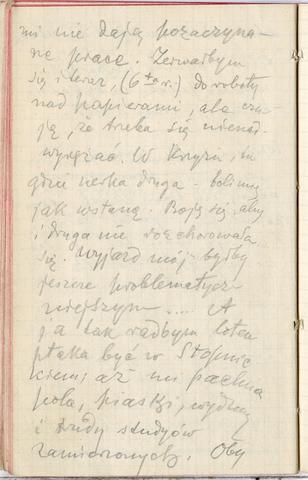 mi nie dają pozaczyna-
ne prace. Zerwałbym
się i teraz, (6ta r.) do roboty
nad papierami, ale czu-
ję, że trzeba się nienad-
wyrężać. W krzyżu, tu
gdzie nerka druga - boli mię
jak wstanę. Boję się, aby
i druga nie rozchorowała
się. Wyjazd mój - byłby
jeszcze problematycz-
niejszym ..... A
ja tak radbym lotem
ptaka być w Słopnic
kiem; aż mi pachną
pola, piaski, wydmy
i trudy studyów
zamierzonych. Oby